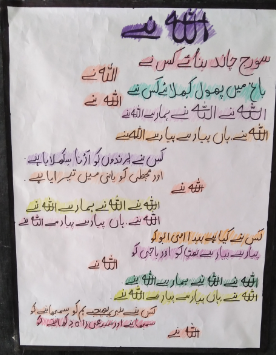 اللہ نے
سورج چاند بنائے کس نے
اللہ نے
باغ میں پھول کھلائے کس نے
اللہ نے
اللہ نے اللہ نے ہمارے اللہ نے
اللہ نے ہاں پیارے پیارے اللہ نے
کس نے پرندوں کو اڑنا سکھلایا ہے
اور مچھلی کو پانی میں تیرایا ہے
اللہ نے
اللہ نے اللہ نے ہمارے اللہ نے
اللہ نے ہاں پیارے پیارے اللہ نے
کس نے کیا ہے پیدا امی ابو کو
پیارے پیارے بھیا کو اور باجی کو
اللہ نے
اللہ نے اللہ نے ہمارے اللہ نے
اللہ نے ہاں پیارے پیارے اللہ نے
کس نے نبی بھیجے ہم کو سمجھانے کو
سمجھانے اور سیدھی راہ دکھانے کو
اللہ نے